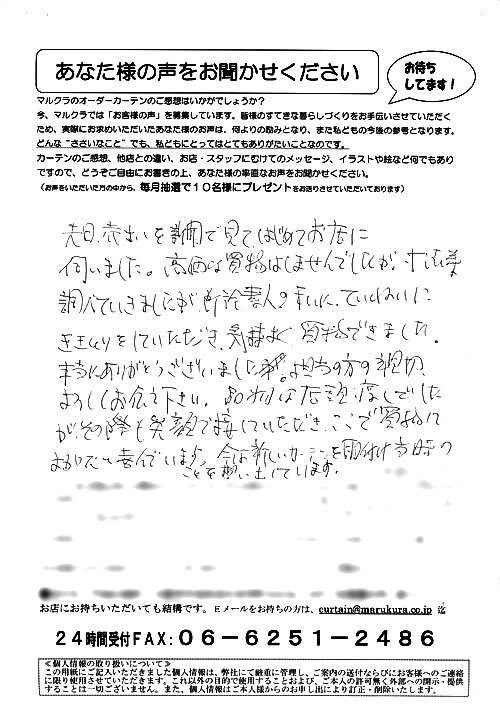 あなた様の声をお聞かせください
お待ち
してます!
マルクラのオーダーカーテンのご感想はいかがでしょうか?
今、マルクラでは「お客様の声」を募集しています。皆様のすてきな暮らしづくりをお手伝いさせていただく
ため、実際にお求めいただいたあなた様のお声は、何よりの励みとなり、また私どもの今後の参考となります。
どんな“ささいなこと”でも、私どもにとってはとてもありがたいことなのです。
カーテンのご感想、他店との違い、お店・スタッフにむけてのメッセージ、イラストや絵など何でもあり
ですので、どうぞご自由にお書きの上、あなた様の率直なお声をお聞かせください。
(お声をいただいた方の中から、毎月抽選で10名様にプレゼントをお送りさせていただいております)
先日、売出しを新聞で見て、はじめてお店に
伺いました。高価な買物はしませんでしたが、寸法等
調べていきましたが
をしていただき、気持よく買物できました。
本当にありがとうございました。担当の方の親切
よろしくお伝え下さい。品物は店頭渡しでした
が、その際も笑顔で接していただき、ここで買物して
よかったと喜んでいます。今は新しいカーテンを取付け当時の
ことを想い出しています。
お店にお持ちいただいても結構です。Eメールをお持ちの方は、curtain@marukura.co.jp 迄
24時間受付FAX:06-6251-2486
≪個人情報の取り扱いについて≫
この用紙にご記入いただきました個人情報は、弊社にて厳重に管理し、ご案内の送付ならびにお客様へのご連絡
に限り使用させていただきます。これ以外の目的で使用することおよび、ご本人の許可無く外部への開示・提供
することは一切ございません。また、個人情報はご本人様からのお申し出により訂正・削除いたします。